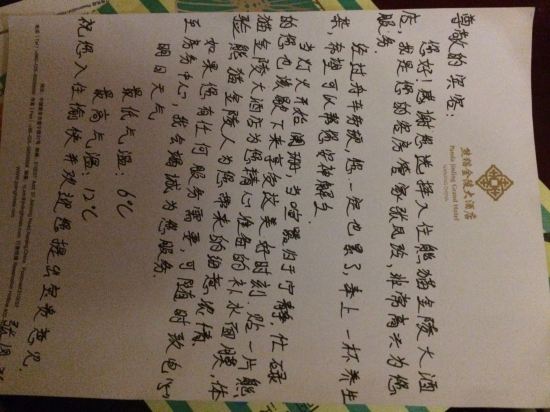 熊猫金陵大酒店
Panda Jinling Grand Hotel
尊敬的宾客:
您好!感谢您选择入住熊猫金陵大酒
店,我是您的客房管家张凤段,非常高兴为您
服务.
经过舟车劳顿,您一定也累了,奉上一杯养生
茶,希望可以帮您安神解乏
当灯火开始阑珊,当喧嚣归于宁静,忙碌
的您也该歇下来享受这美好时刻.贴一片熊
猫金陵大酒店为您精心准备的补水面膜,体
验熊猫金陵人为您带来的细意浓情.
如果您有任何服务需要可随时致电“6”
至房务中心,我会竭诚为您服务.
明日天气
最低气温:6℃
最高气温:12℃
祝您入住愉快并欢迎您提出宝贵意见.